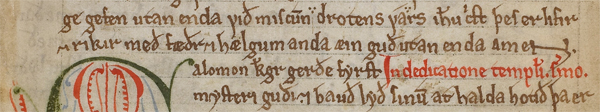 ge gefen utan enda við miscuɴ drotens várs ihu cſt þeſ er lifir
⁊ rikir með fæðr ⁊ hælgum anda æin guð utan enda amen
Salomon kgr gerðe fyrſt In dedicatione templi. ſermo.
myſteri guði ⁊ bauð lyð ſinum at halda hotið þa er